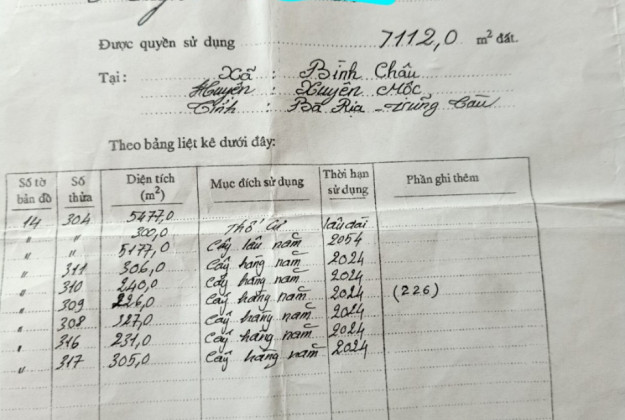 Được quyền sử dụng 7112,0 m² đất.
Tại: Xã : Bình Châu
Huyện : Xuyên Mộc,
Tỉnh : Bà Rịa - Vũng Tàu
Theo bảng liệt kê dưới đây:
Số tờ bản đồ Số thửa Diện tích (m²) Mục đích sử dụng Thời hạn sử dụng Phần ghi thêm
14 304 5477,0
" " 300,0 Thổ Cư lâu dài
" " 5177,0 Cây lâu năm 2054
" 311 306,0 Cây hàng năm 2024
" 310 240,0 Cây hàng năm 2024
" 309 226,0 Cây hàng năm 2024 (226)
" 308 327,0 Cây hàng năm 2024
" 316 231,0 Cây hàng năm 2024
" 317 305,0 Cây hàng năm 2024